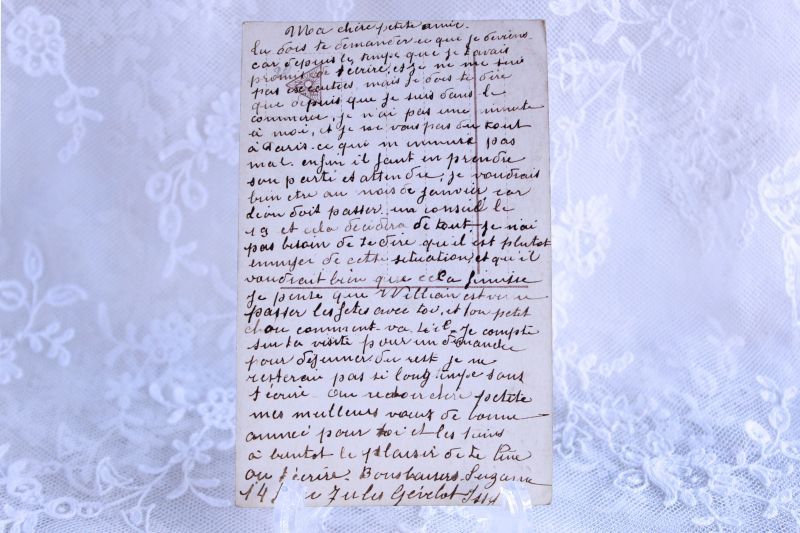 Ma chère petite amie.
Tu dois te demander ce que je deviens
car depuis le temps que je t'avais
promis de t'écrire, et je ne me suis
pas exécutée, mais je dois te dire
que depuis que je suis dans le
commerce, je n'ai pas une minute
à moi, et je ne vais pas du tout
à Paris. ce qui m'ennuie pas
mal. enfin il faut en prendre
son parti et attendre, je voudrais
bien être au mois de janvier car
Léon doit passer un conseil le
19 et cela décidera de tout. je n'ai
pas besoin de te dire qu'il est plutôt
ennuyer de cette situation, et qu'il
voudrait bien que cela finisse
Je pense que William est venu
passer les fêtes avec toi, et ton petit
chou comment va t-il. Je compte
sur ta visite pour un dimanche
pour déjeuner du rest je ne
resterai pas si longtemps sans
t'écrire. chère petite
mes meilleurs vœux de bonne
année pour toi et les tiens
à bientôt le plaisir de te lire
ou t'écrire. Bons baisers. Suzanne
14 Jules Gévelot Issy